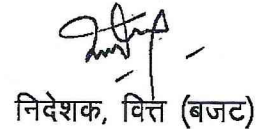 निदेशक, वित्त (बजट)